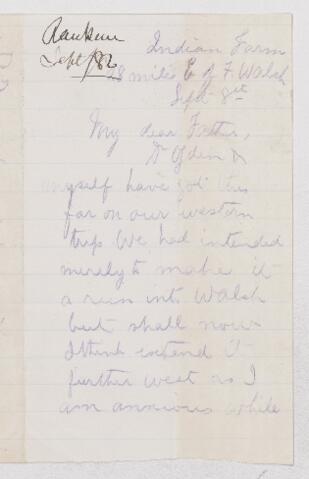 Rankin
Sept/82
Indian Farm
28 miles E of F. Walsh
Sept 8th
My dear Father,
Dr Ogden &
myself have got this
far on our western
trip. We had intended
merely to make it
a run into Walsh
but shall now
I think extend it
further west as I
am anxious while